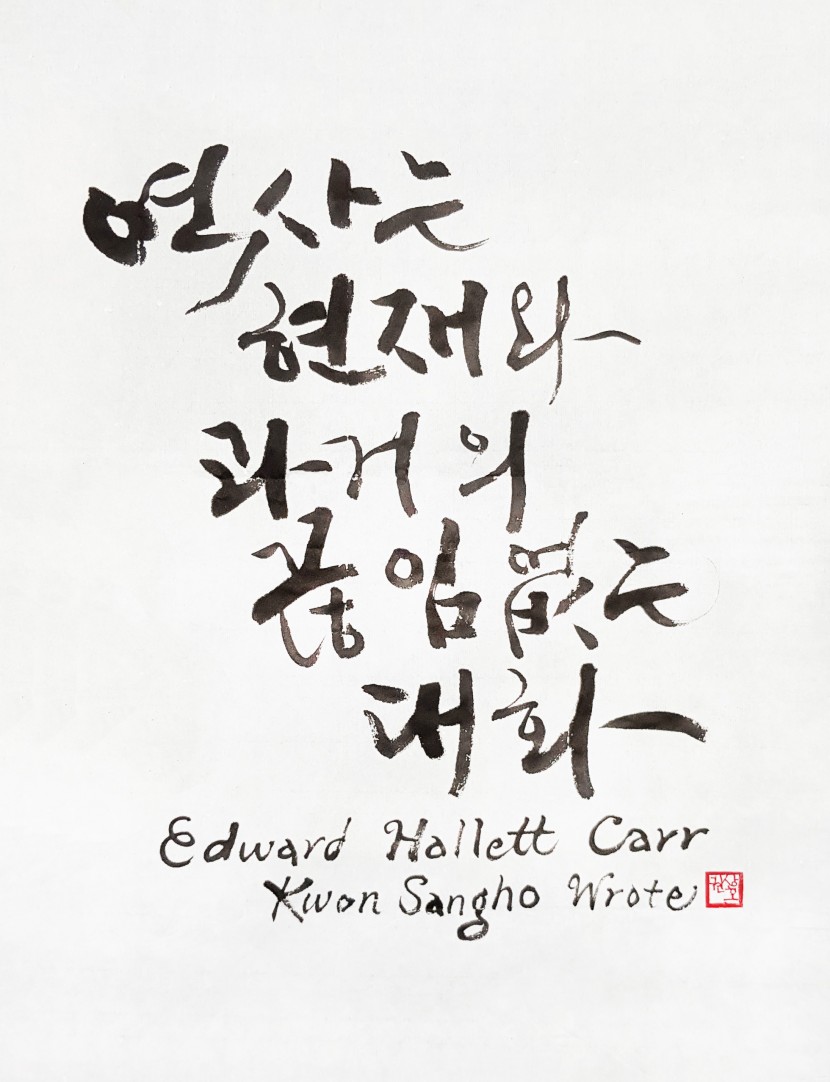 역사는
현재와
과거의
끊임없는
대화
Edward Hallett Carr
Kwon Sangho Wrote
권상호